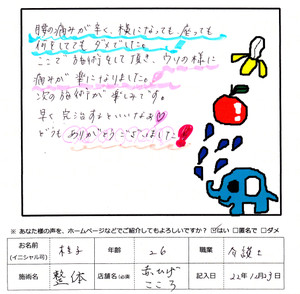 腰の痛みが辛く、横になっても、座っても
何をしてもダメでした。
ここで施術をして頂き、ウソの様に
痛みが楽になりました。
次の施術が楽しみです。
早く完治すると いいなぁ
どうも ありがとうございました!
※ あなた様の声を、ホームページなどでご紹介してもよろしいですか? ☑はい □匿名で □ダメ
お名前 (イニシャル可) 桂子 年齢 26 職業 介護士
施術名 整体 店舗名 赤ひげ こころ 記入日 22年12月23日